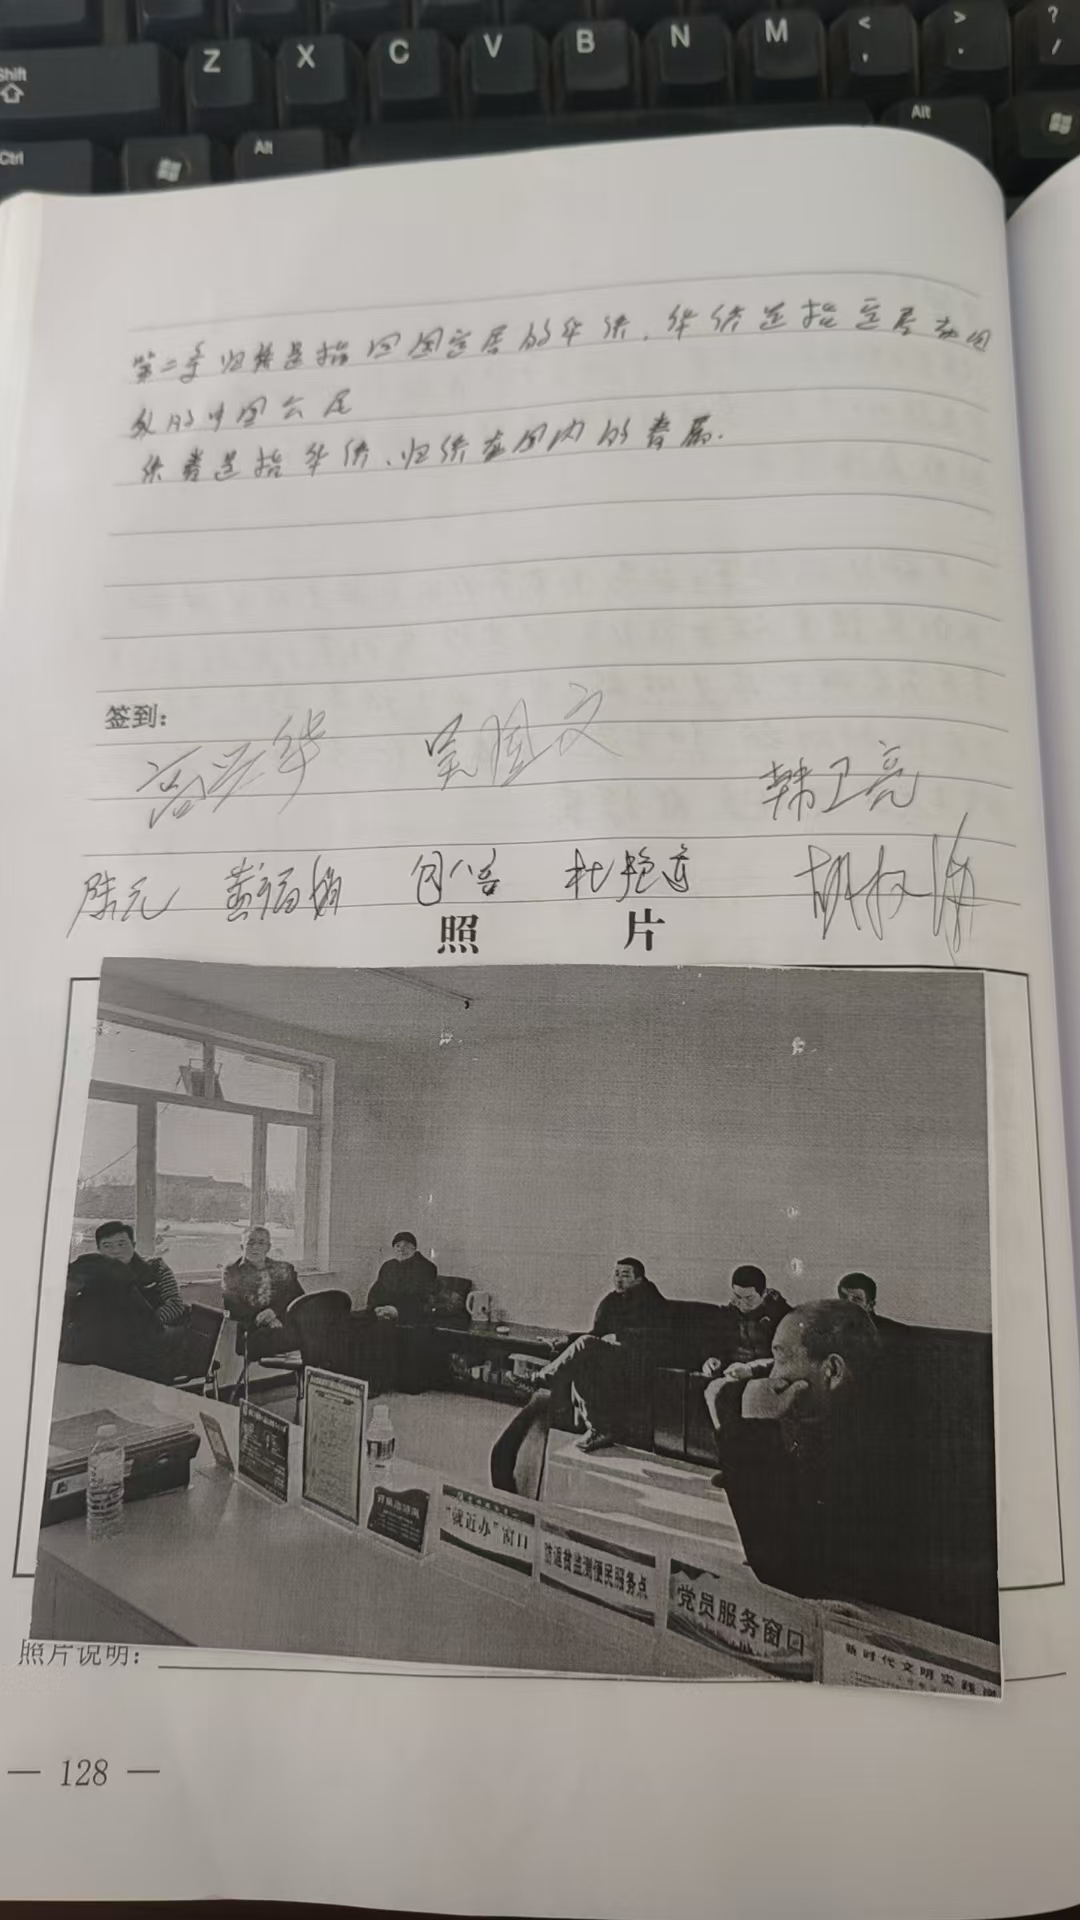 Z X C V B N M < , > . ? /
Shift
Ctrl Alt Alt
第二条 归侨是指回国定居的华侨、华侨是指定居在国
外的中国公民
侨眷是指华侨、归侨在国内的眷属.
签到:
吴国文 韩卫亮
陈元
照 片
"就近办"窗口
防返贫监测便民服务点
党员服务窗口
新时代文明实践
照片说明:
— 128 —